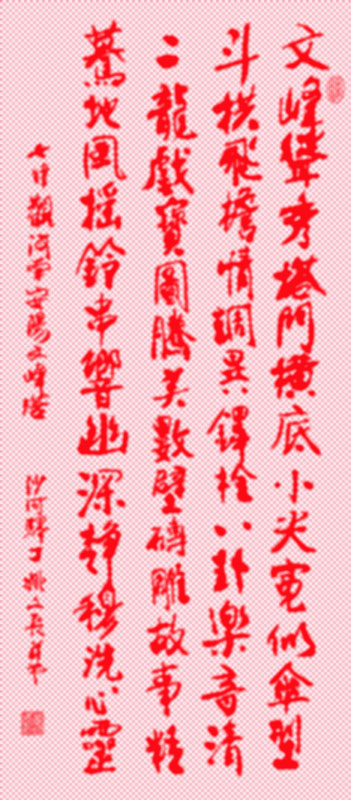 文峰聳秀塔門橫底小尖寬似傘型
斗拱飛檐情調異鐸栓八卦樂音清
二龍戲寶圖騰美數壁磚雕故事精
驀地風搖鈴串響幽深靜穆洗心靈
七律觀河南安陽文峰塔 沙河驛